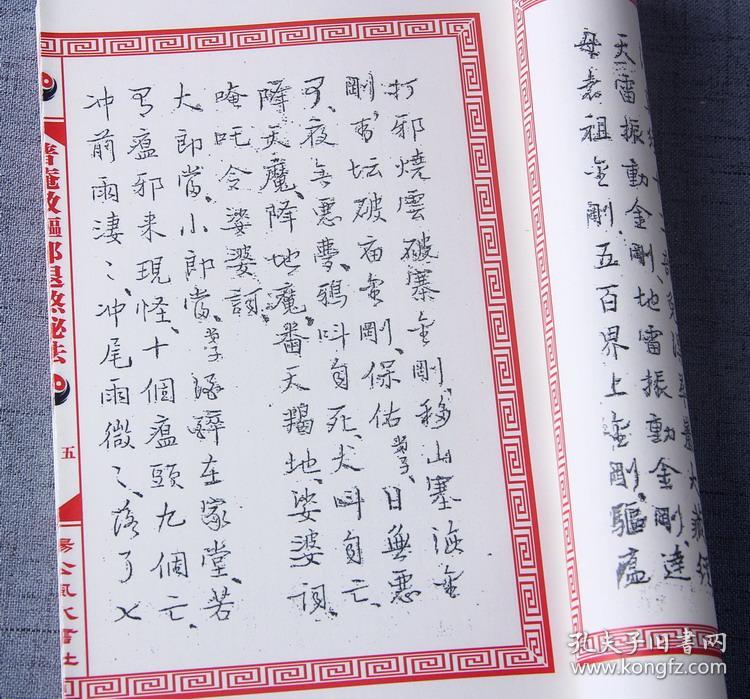 天雷振動金剛、地雷振動金剛、達
母袁祖金剛、五百界上金剛、驅瘟
打邪燒雲破寨金剛、移山塞海金
剛、封坛破庙金剛、保佑弟子、日無惡
了、夜無惡夢、鴉呌自死、犬呌自亡、
降天魔、降地魔番天羯地、娑婆訶、
唵吒令婆婆訶
大郎當、小郎當、弟子酒醉在家堂、若
有瘟邪来現怪、十個瘟頭九個亡、
冲前雨淒〻、冲尾雨微〻、落了
普庵救瘟邪退煞秘法
五
楊公風水書社
孔夫子旧书网
www.kongfz.com